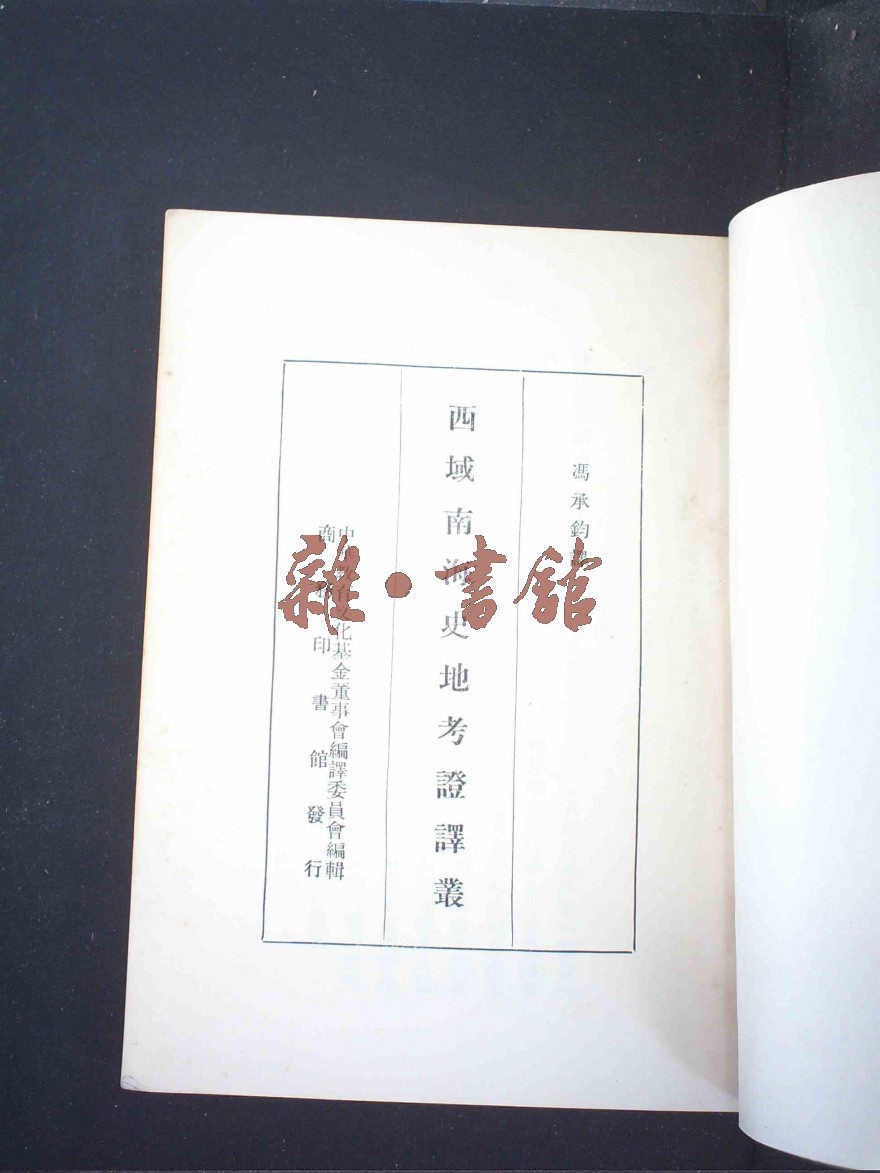 馮承鈞譯
西域南海史地考證譯叢
中華教育文化基金董事會編譯委員會編輯
商務印書館發行
雜·書館